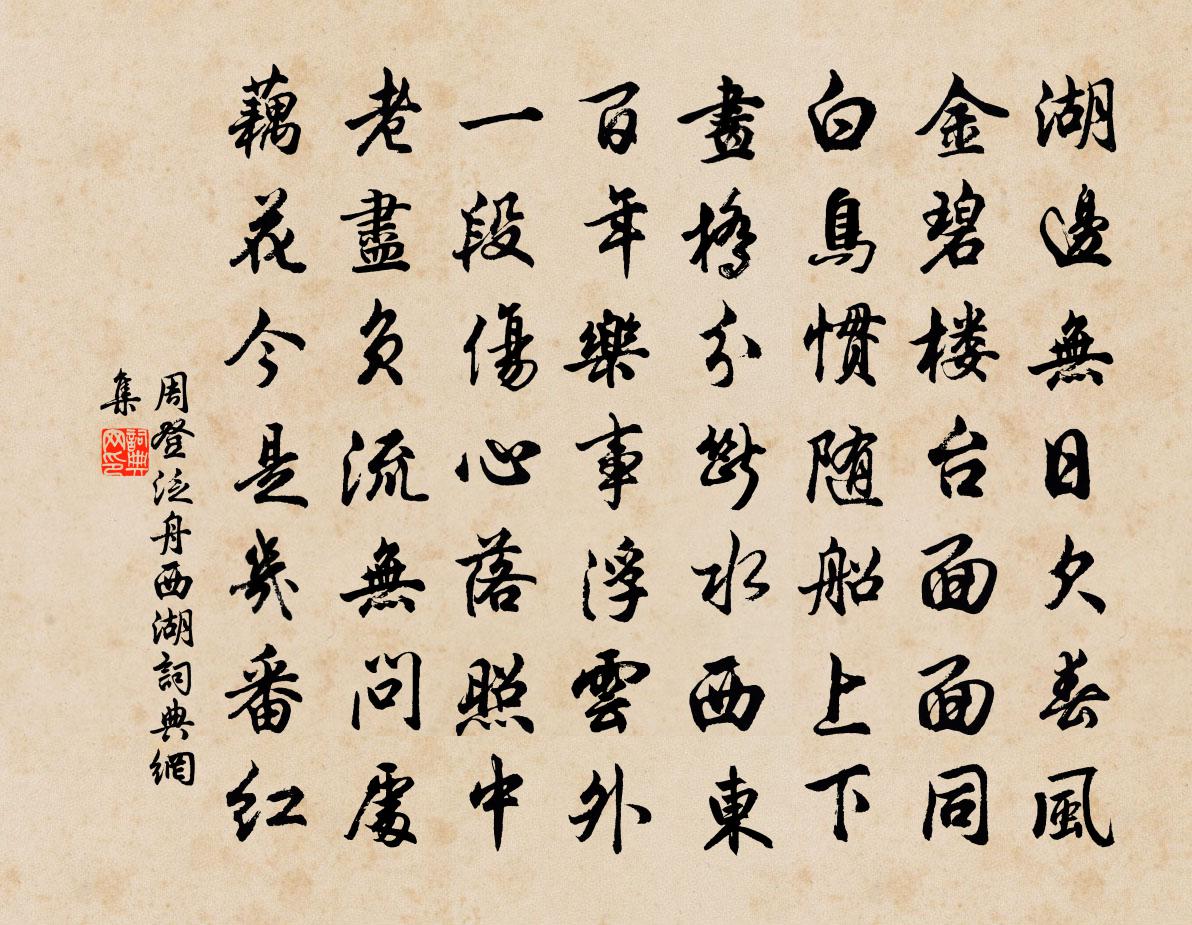 湖邊無日欠春風
金碧楼台面面同
白鳥慣随船上下
畫橋分斷水西東
百年樂事浮雲外
一段傷心落照中
老盡負流無問處
藕花今是幾番红
周登泛舟西湖詞典網
集
詞典
网印